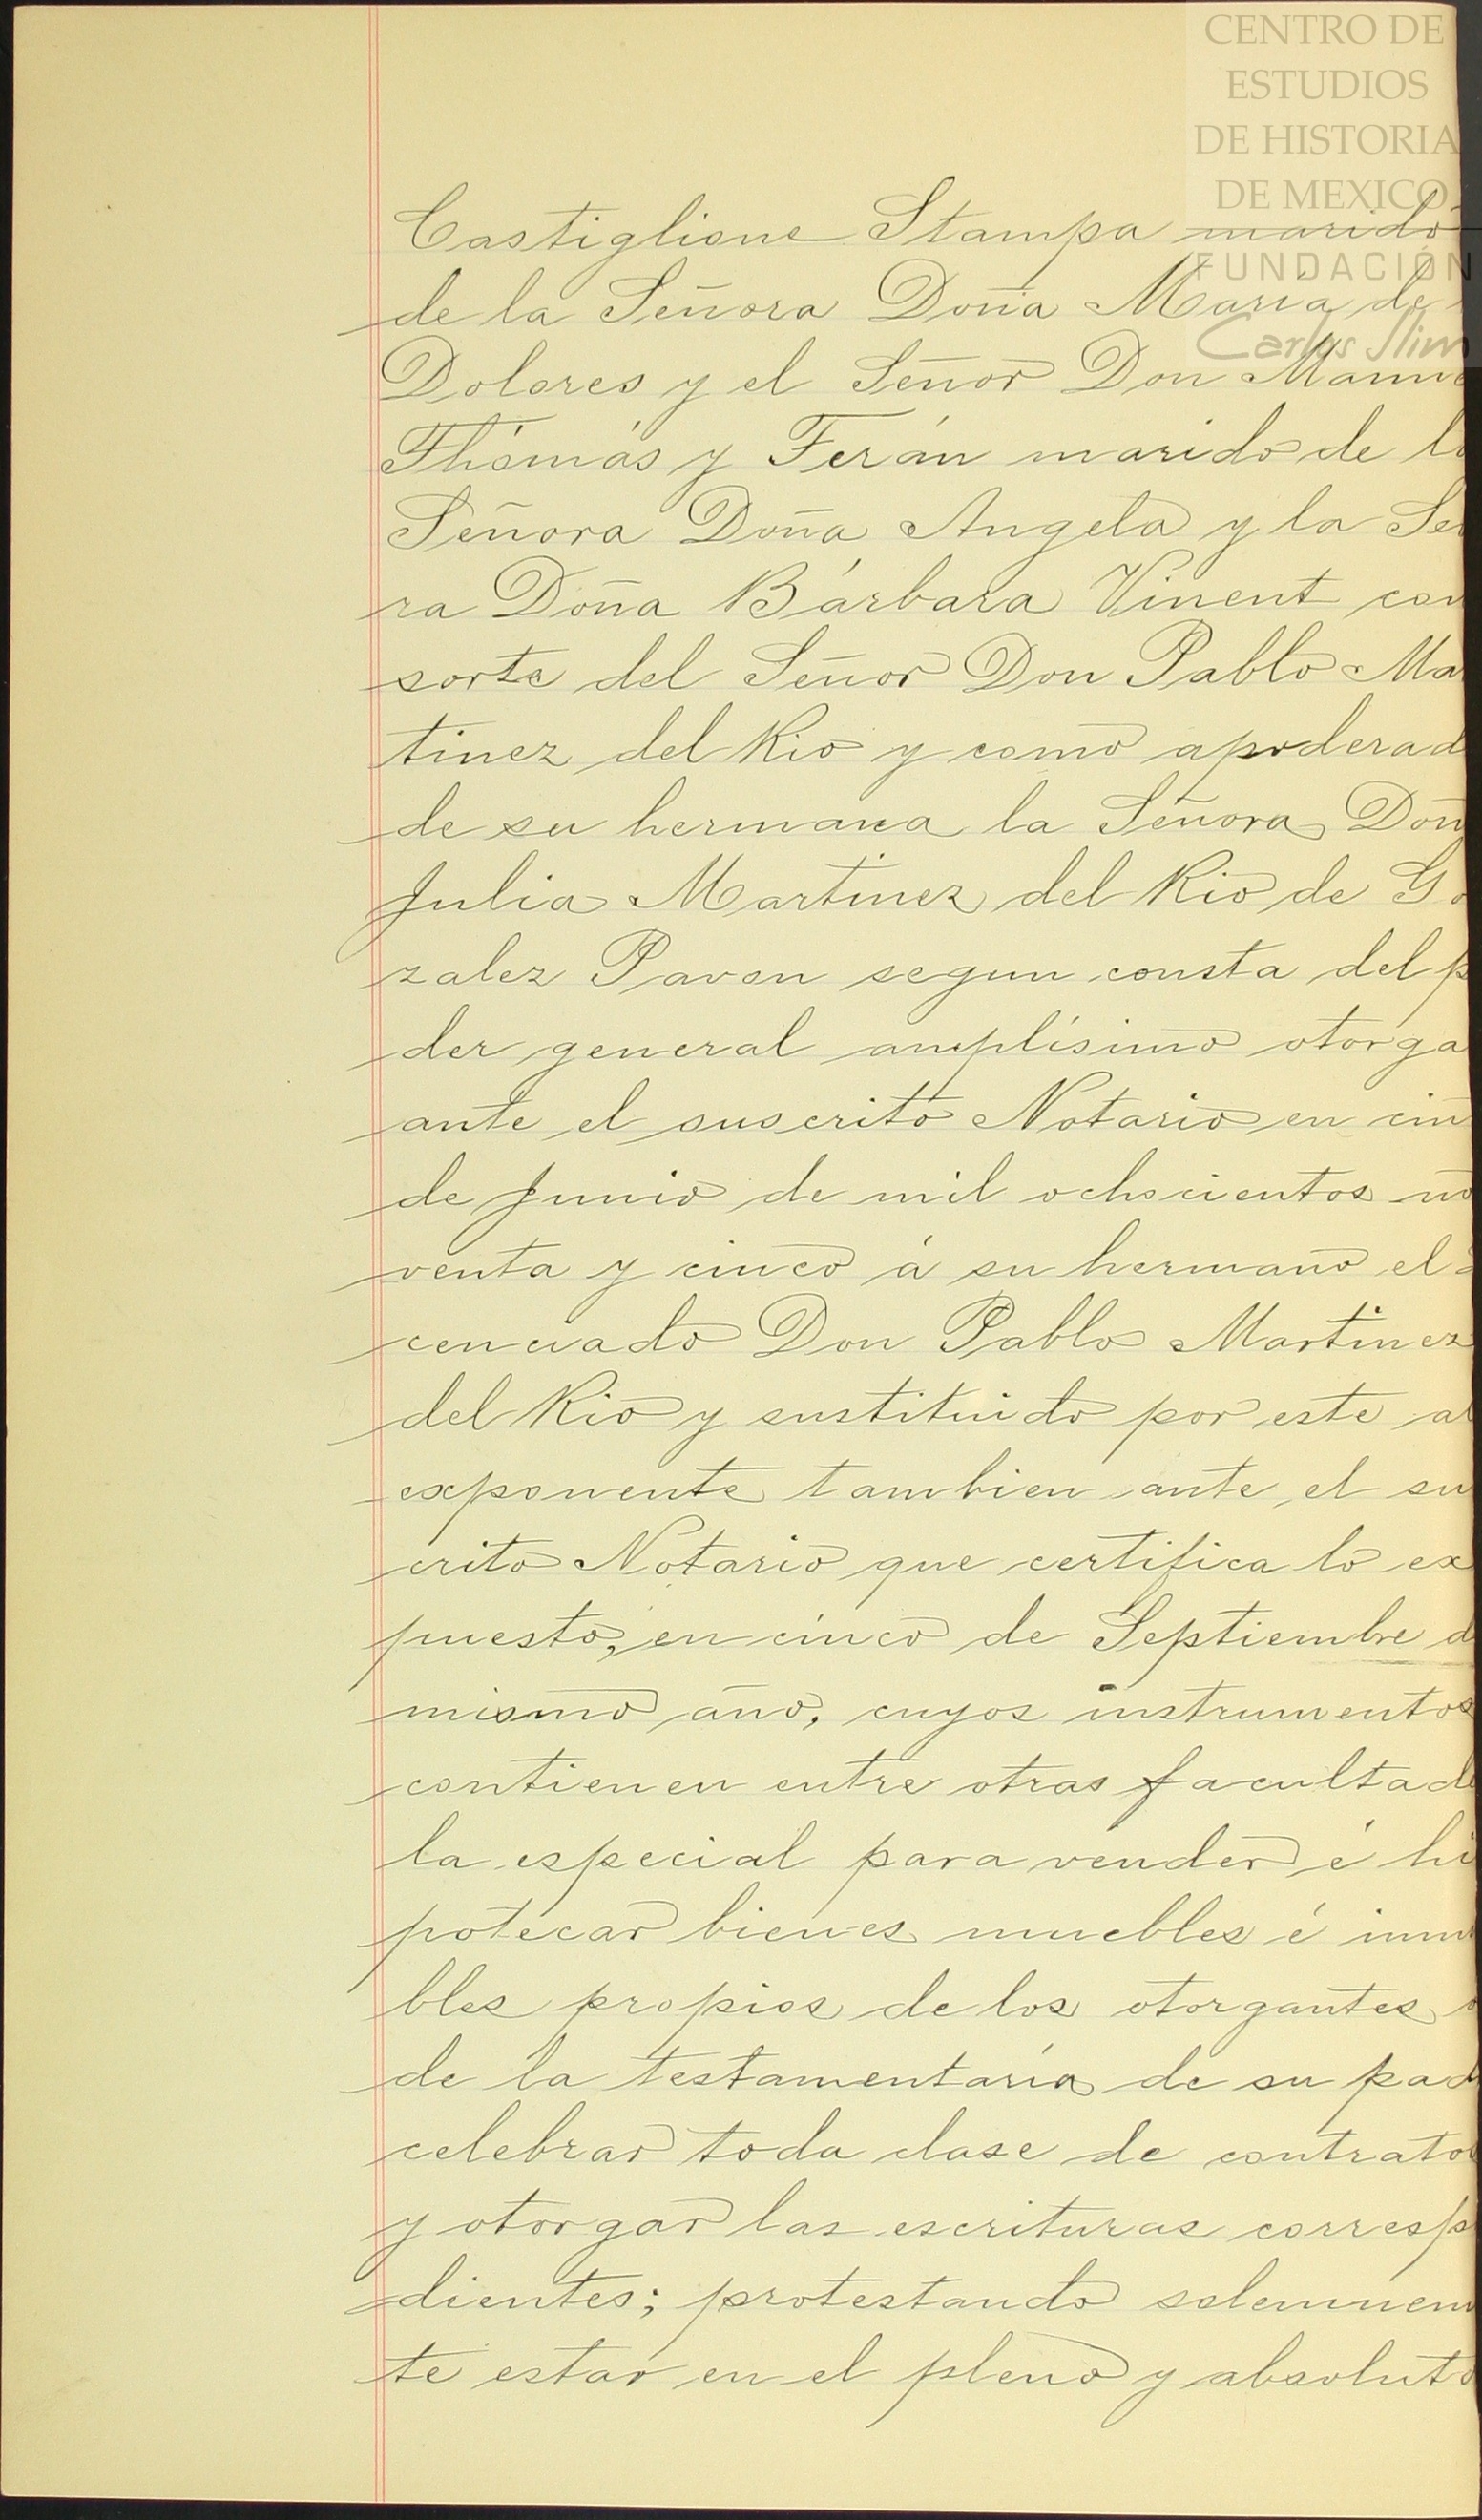 CENTRO DE
ESTUDIOS
DE HISTORIA
DE MEXICO
FUNDACIÓN
Carlos Slim
Castiglione Stampa marido
de la Señora Doña María de
Dolores y el Señor Don Manue
Thómás y Terán marido de la
Señora Doña Angela y la Se
ra Doña Bárbara Vinent con
sorte del Señor Don Pablo Ma
tinez del Rio y como apoderad
de su hermana la Señora Doñ
Julia Martinez del Rio de Go
zalez Pavon segun consta del p
der general amplísimo otorga
ante el suscrito Notario en cin
de Junio de mil ochocientos no
venta y cinco á su hermano el
cenciado Don Pablo Martinez
del Rio y sustituido por este al
exponente tambien ante el su
crito Notario que certifica lo ex
puesto, en cinco de Septiembre d
mismo año, cuyos instrumentos
contienen entre otras facultade
la especial para vender é hi
potecar bienes muebles é inmu
bles propios de los otorgantes o
de la testamentaría de su pad
celebrar toda clase de contratos
y otorgar las escrituras corresp
dientes; protestando solemnem
te estar en el pleno y absoluto